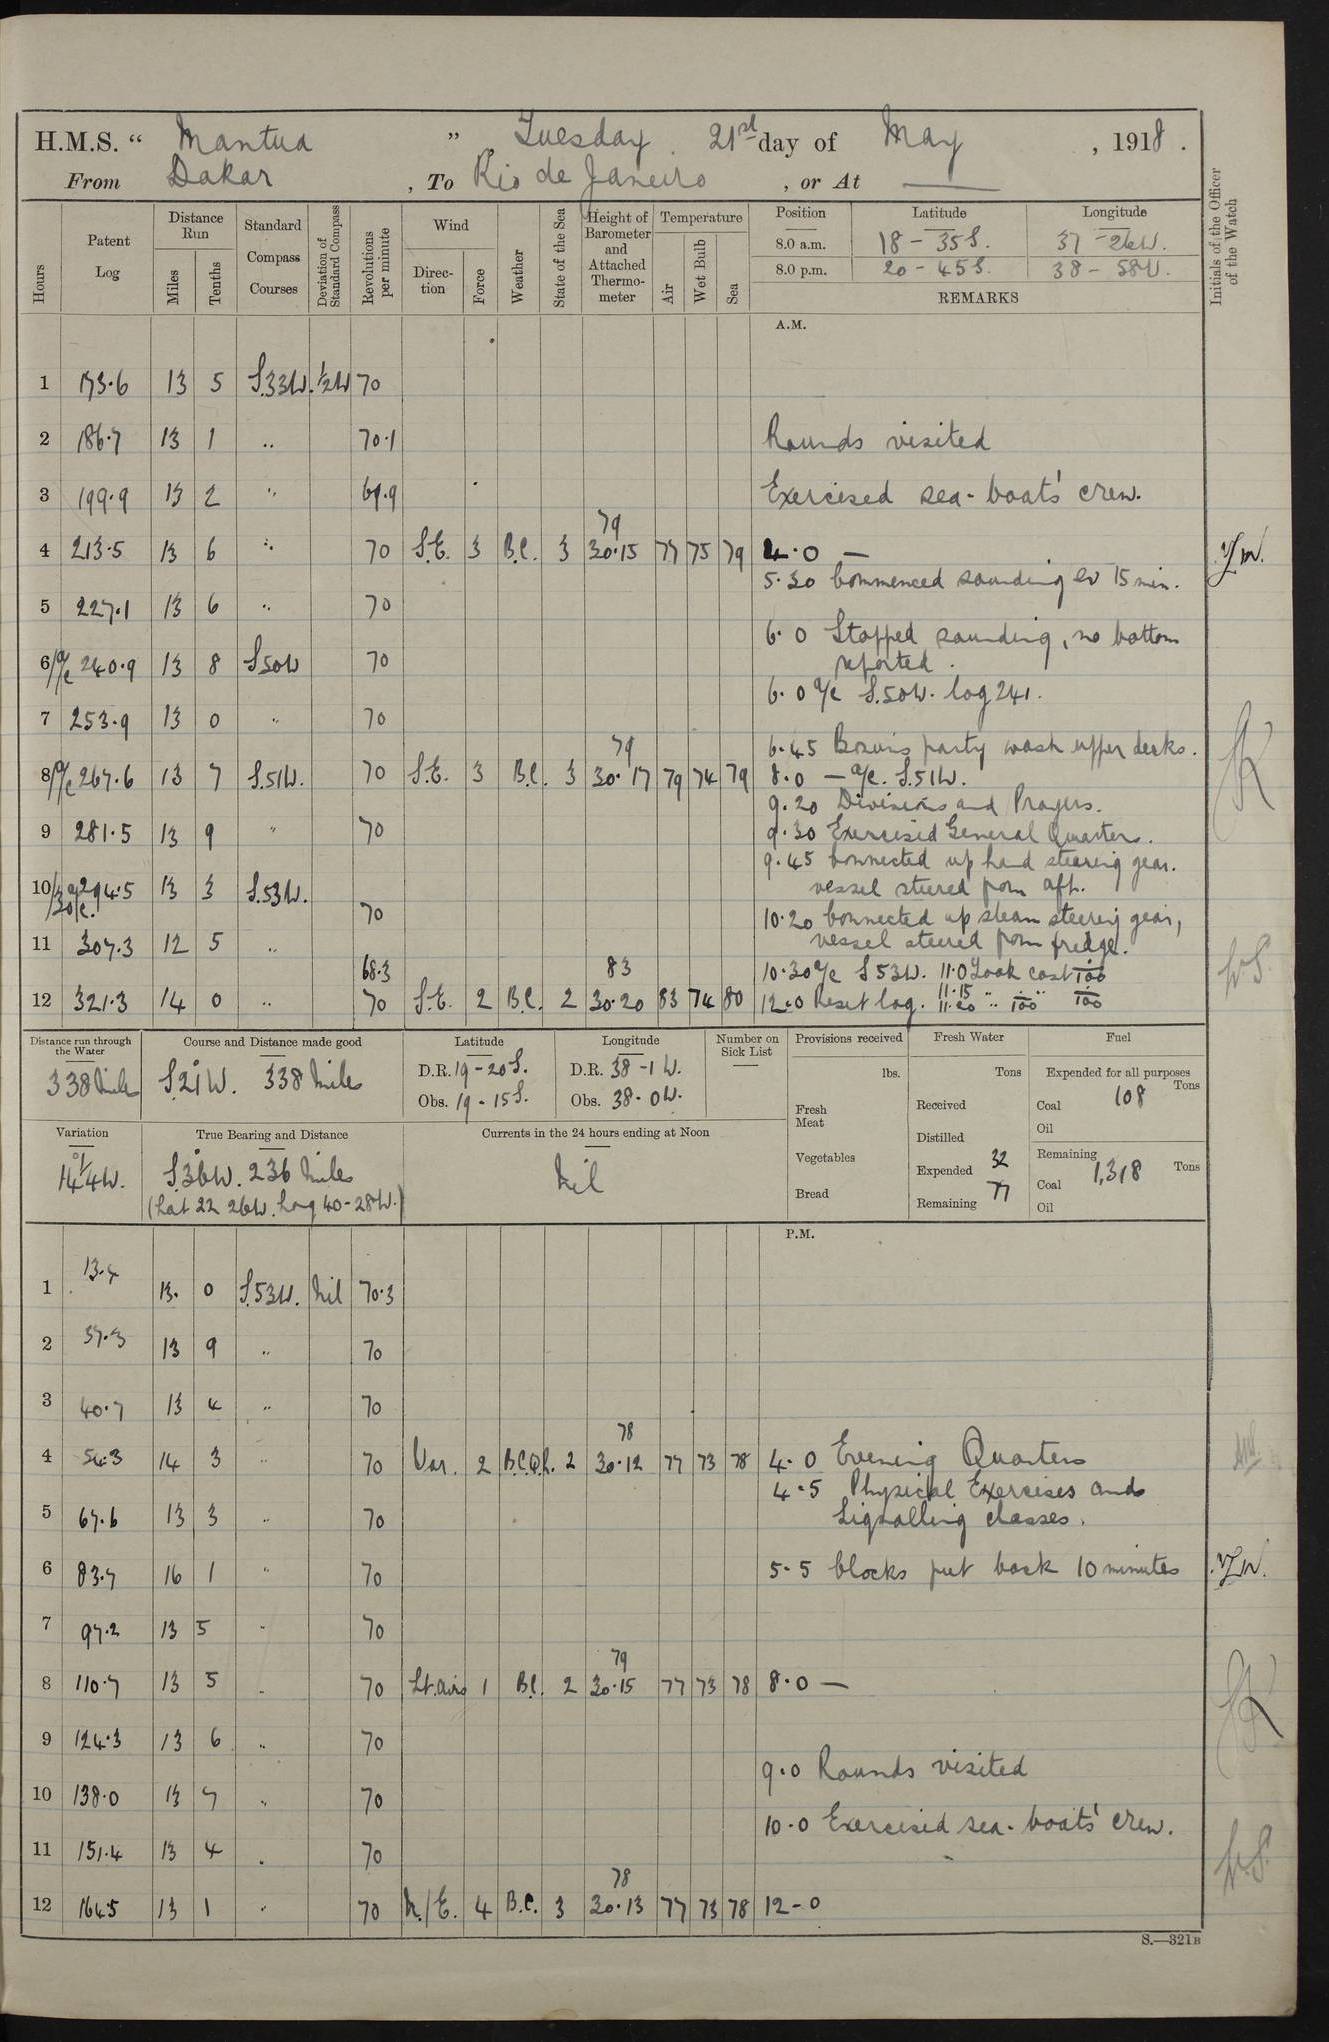 H.M.S. “ Mantua ” Tuesday 21st day of May , 1918 .
From Dakar , To Rio de Janeiro , or At —
Hours
Patent Log
Distance Run
Miles
Tenths
Standard Compass Courses
Deviation of Standard Compass
Revolutions per minute
Wind
Direction
Force
Weather
State of the Sea
Height of Barometer and Attached Thermometer
Temperature
Air
Wet Bulb
Sea
Position Latitude Longitude
8.0 a.m. 18 - 35 S. 37 - 26 W.
8.0 p.m. 20 - 45 S. 38 - 58 W.
REMARKS
Initials of the Officer of the Watch
A.M.
1 173.6 13 5 S.33W. ½W 70
2 186.7 13 1 .. 70.1 Rounds visited
3 199.9 13 2 .. 69.9 Exercised sea-boats' crew.
79
4 213.5 13 6 .. 70 S.E. 3 B.C. 3 30.15 77 75 79 4.0 —
5.30 Commenced sounding ev 15 min.
5 227.1 13 6 .. 70
6.0 Stopped sounding, no bottom
6 a/c 240.9 13 8 S50W 70 reported.
6.0 a/c S.50W. log 241.
7 253.9 13 0 .. 70
79
6.45 Bosuns party wash upper decks.
8 a/c 267.6 13 7 S.51W. 70 S.E. 3 B.C. 3 30.17 79 74 79 8.0 — a/c. S.51W.
9.20 Divisions and Prayers.
9 281.5 13 9 .. 70 9.30 Exercised General Quarters.
9.45 Connected up hand steering gear.
10/30 a/c. 294.5 13 3 S.53W. 70 vessel steered from aft.
10.20 Connected up steam steering gear,
11 307.3 12 5 .. 68.3 vessel steered from bridge.
83
10.30 a/c S53W. 11.0 Took cast
12 321.3 14 0 .. 70 S.E. 2 B.C. 2 30.20 83 74 80 12.0 Reset log. 11.15 .. ..
Distance run through the Water
338 Miles
Course and Distance made good
S.21W. 338 Miles
Latitude
D.R. 19-20 S.
Obs. 19-15 S.
Longitude
D.R. 38-1 W.
Obs. 38-0 W.
Number on Sick List
—
Provisions received
lbs.
Fresh Meat
Vegetables
Bread
Fresh Water
Tons
Received
Distilled
Expended 32
Remaining 77
Fuel
Expended for all purposes
Tons
Coal 108
Oil
Remaining
Tons
Coal 1,318
Oil
Variation
14¼W.
True Bearing and Distance
S36W. 236 Miles
(Lat 22 26W. Long 40-28W.)
Currents in the 24 hours ending at Noon
Nil
P.M.
1 13.4 13. 0 S.53W. Nil 70.3
2 13 9 .. 70
3 40.7 13 4 .. 70
78
4 54.3 14 3 .. 70 Var. 2 2 30.12 77 73 78 4.0 Evening Quarters
4.5 Physical Exercises and
5 67.6 13 3 .. 70 Signalling classes.
6 83.7 16 1 .. 70 5.5 Clocks put back 10 minutes
7 97.2 13 5 .. 70
79
8 110.7 13 5 .. 70 Lt. airs 1 B.C. 2 30.15 77 73 78 8.0 —
9 124.3 13 6 .. 70
9.0 Rounds visited
10 138.0 13 7 .. 70
10.0 Exercised sea-boats' crew.
11 151.4 13 4 .. 70
78
12 164.5 13 1 .. 70 N/E. 4 B.C. 3 30.13 77 73 78 12-0
S.—321B